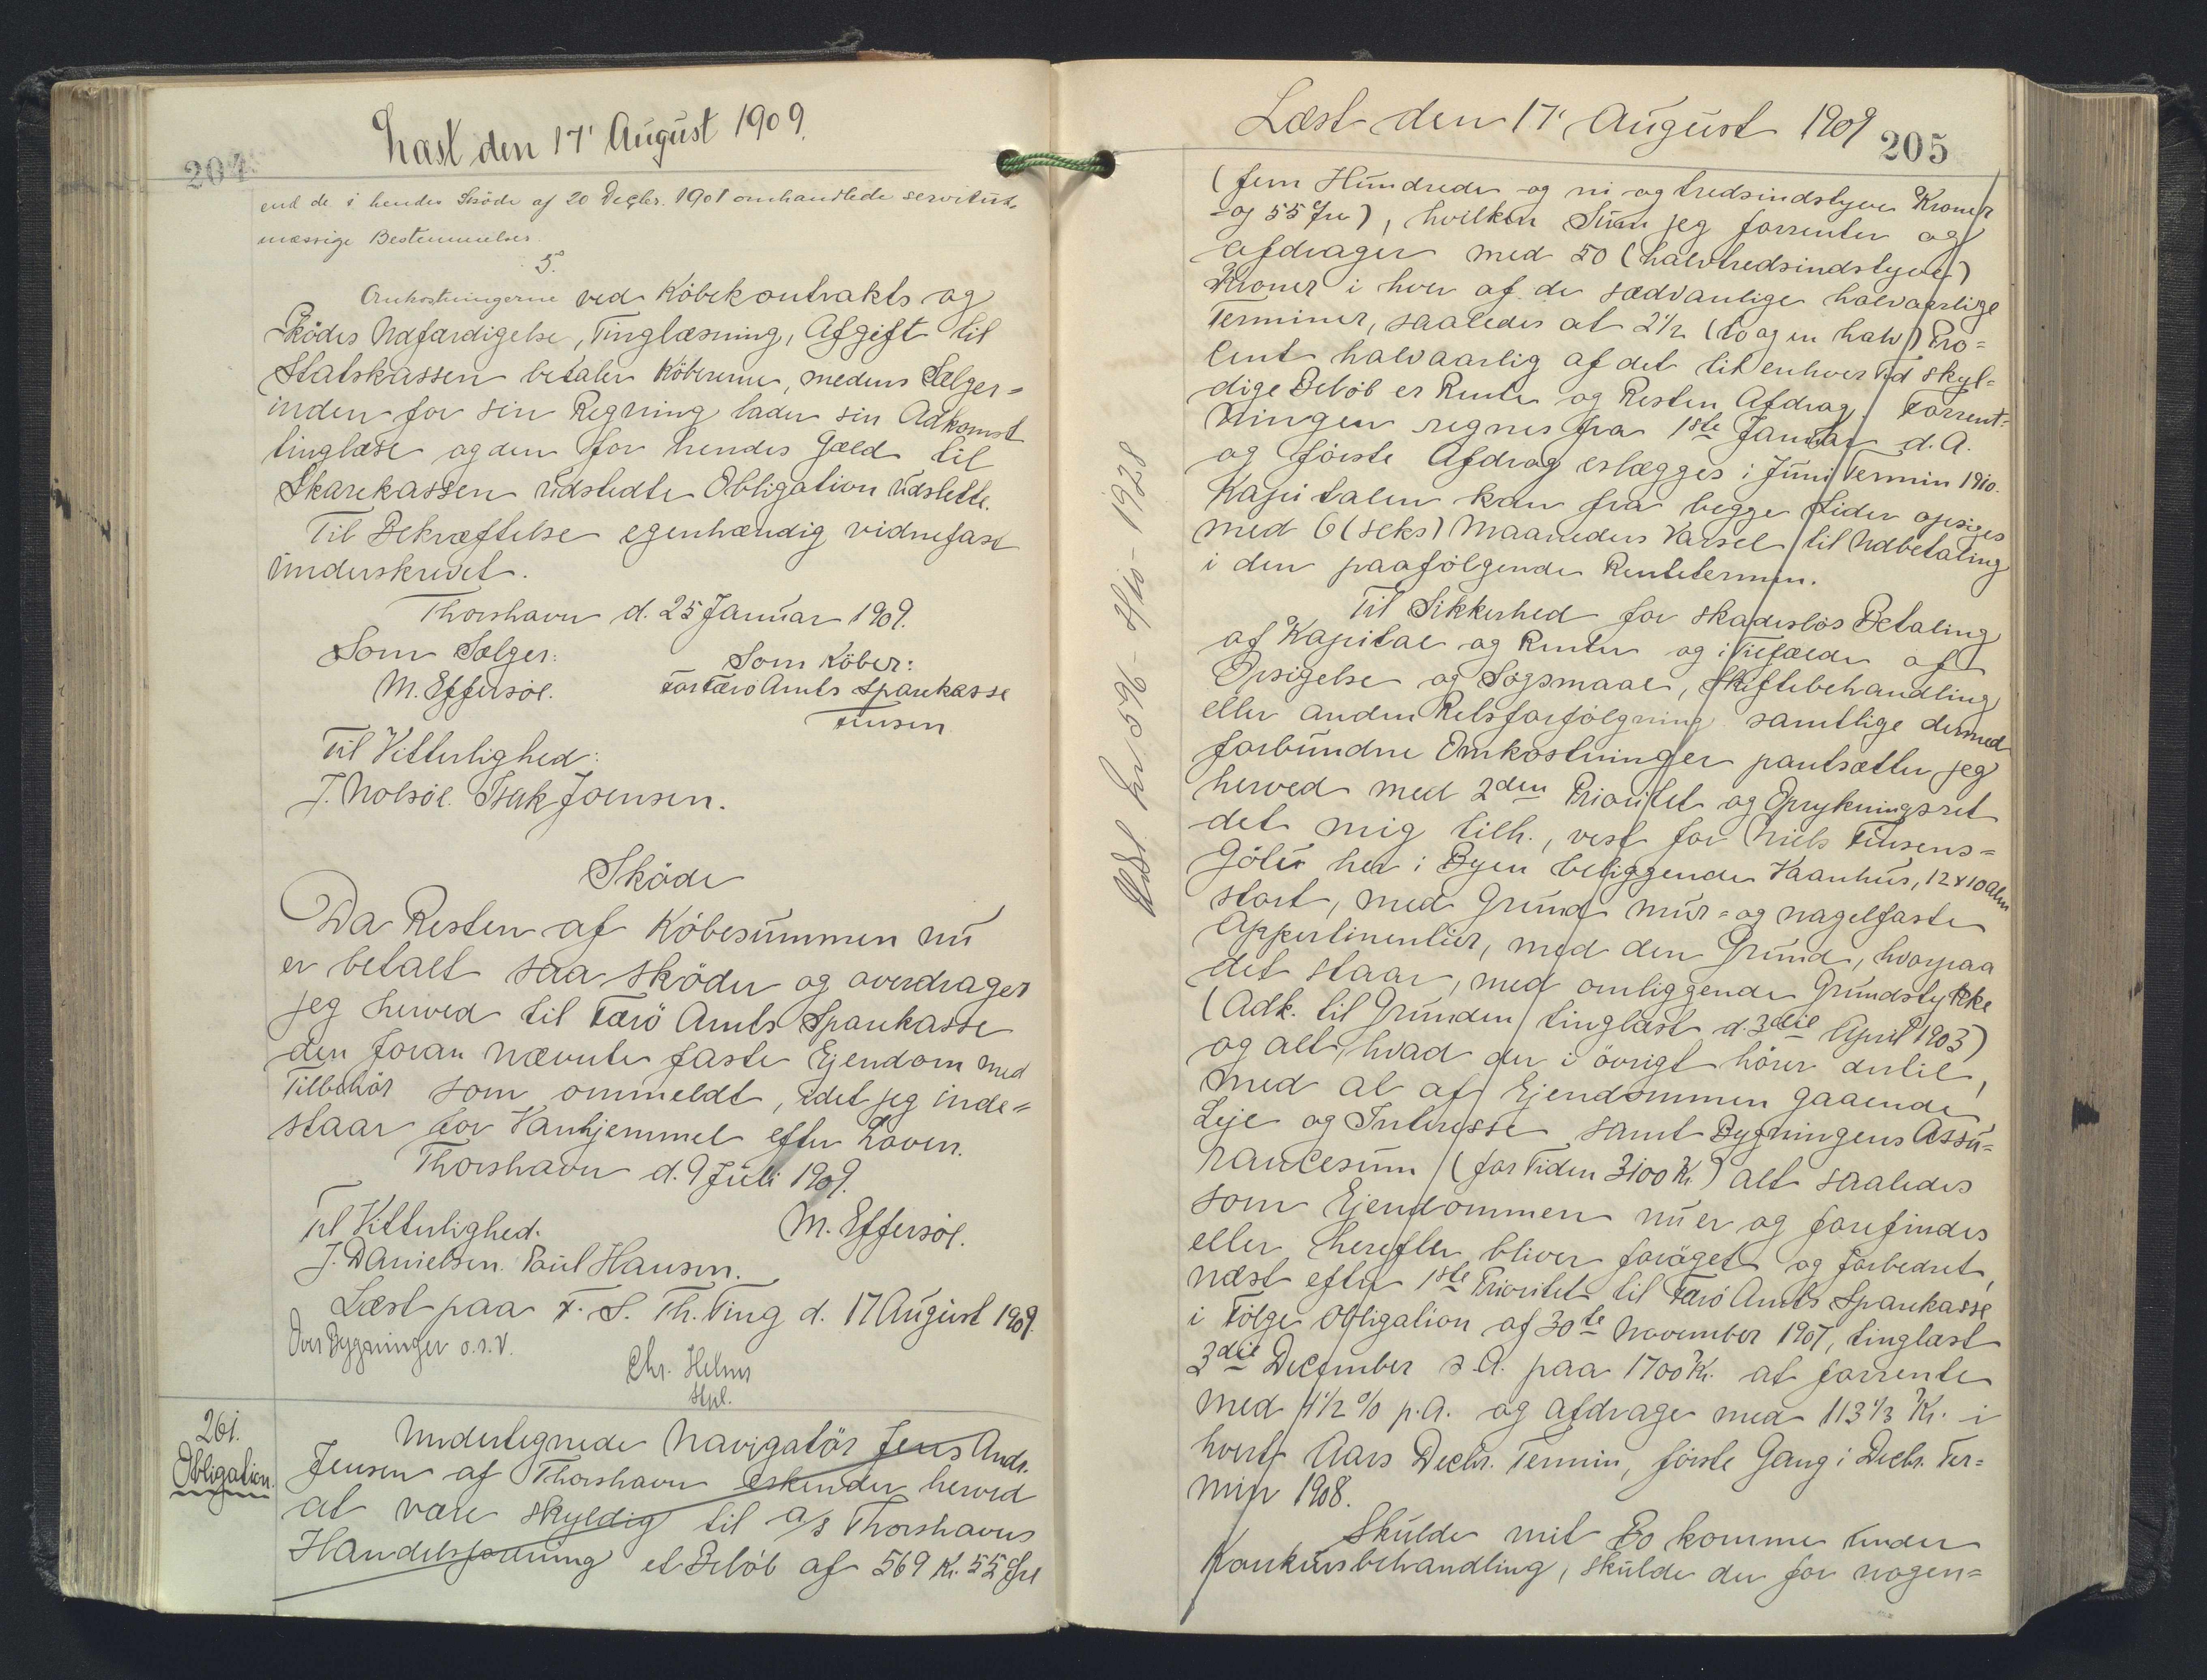 Læst den 17' August 1909.
204
end de i hendes Sköde af 20 Decbr. 1901 omhandlede servitut-
mæssige Bestemmelser.
5.
Omkostningerne ved Köbekontrakts og
Sködes Udfærdigelse, Tinglæsning, Afgift til
Statskassen betaler Köberne, medens Sælger=
inden for sin Regning lader sin Adkomst
tinglæse og den for hendes Gæld til
Sparekassen udstedte Obligation udslette.
Til Bekræftelse egenhændig vidnefast
underskrevet.
Thorshavn d. 25 Januar 1909.
Som Sælger: Som Köber:
M. Effersöl. For Færö Amts Sparekasse
Finsen
Til Vitterlighed:
J. Nolsöl. Isak Joensen.
Sköde
Da Resten af Köbesummen nu
er betalt saa sköder og overdrager
jeg herved til Færö Amts Sparekasse
den foran nævnte faste Ejendom med
Tilbehör som ommeldt, idet jeg inde=
staar for Vanhjemmel efter Loven.
Thorshavn d. 9 Juli 1909.
Til Vitterlighed. M. Effersöl.
J. Danielsen. Poul Hansen.
Læst paa F. S. Th. Ting d. 17 August 1909.
Over Bygninger o.s.v.
Chr. Helms
Hpl.
261.
Obligation.
Undertegnede Navigatör Jens Andr.
Jensen af Thorshavn erkender herved
at være skyldig til A/S Thorshavns
Handelsforening et Belöb af 569 Kr. 55 Øre
Læst den 17' August 1909
205
(fem Hundrede og ni og tredsindstyve Kroner
og 55 Øre), hvilken Sum jeg forrenter og
afdrager med 50 (halvtredsindstyve)
Kroner i hver af de sædvanlige halvaarlige
Terminer, saaledes at 2½ (to og en halv) Pro=
cent halvaarlig af det til enhver Tid skyl=
dige Belöb er Rente og Resten Afdrag. Forrent=
ningen regnes fra 1ste Januar d. A.
og förste Afdrag erlægges i Juni Termin 1910.
Kapitalen kan fra begge Sider opsiges
med 6 (seks) Maaneders Varsel til Udbetaling
i den paafölgende Rentetermin.
Til Sikkerhed for skadeslös Betaling
af Kapital og Renter og i Tilfælde af
Opsigelse og Sögsmaal, Skiftebehandling
eller anden Retsforfölgning samtlige dermed
forbundne Omkostninger pantsætter jeg
herved med 2den Prioritet og Oprykningsret
det mig tilh., vest for Niels Finsens=
göta her i Byen beliggende Vaanhus, 12x10 Aln
stort, med Grund mur= og nagelfaste
Appertinentier, med den Grund, hvorpaa
det staar, med omliggende Grundstykke
(Adk. til Grunden tinglæst d. 3die April 1903)
og alt, hvad der i övrigt hörer dertil,
med al af Ejendommen gaaende
Leje og Interesse samt Bygningens Assu=
rancesum (for Tiden 3100 Kr.) alt saaledes
som Ejendommen nu er og forefindes
eller herefter bliver foröget og forbedret,
næst efter 1ste Prioritet til Færö Amts Sparekasse
i Fölge Obligation af 30te November 1907, tinglæst
3die December s. A. paa 1700 Kr. at forrente
med 4½ % p. A. og afdrage med 113⅓ Kr. i
hvert Aars Decbr. Termin, förste Gang i Decbr. Ter=
min 1908.
Skulde mit Bo komme under
Konkursbehandling, skulde der for nogen=